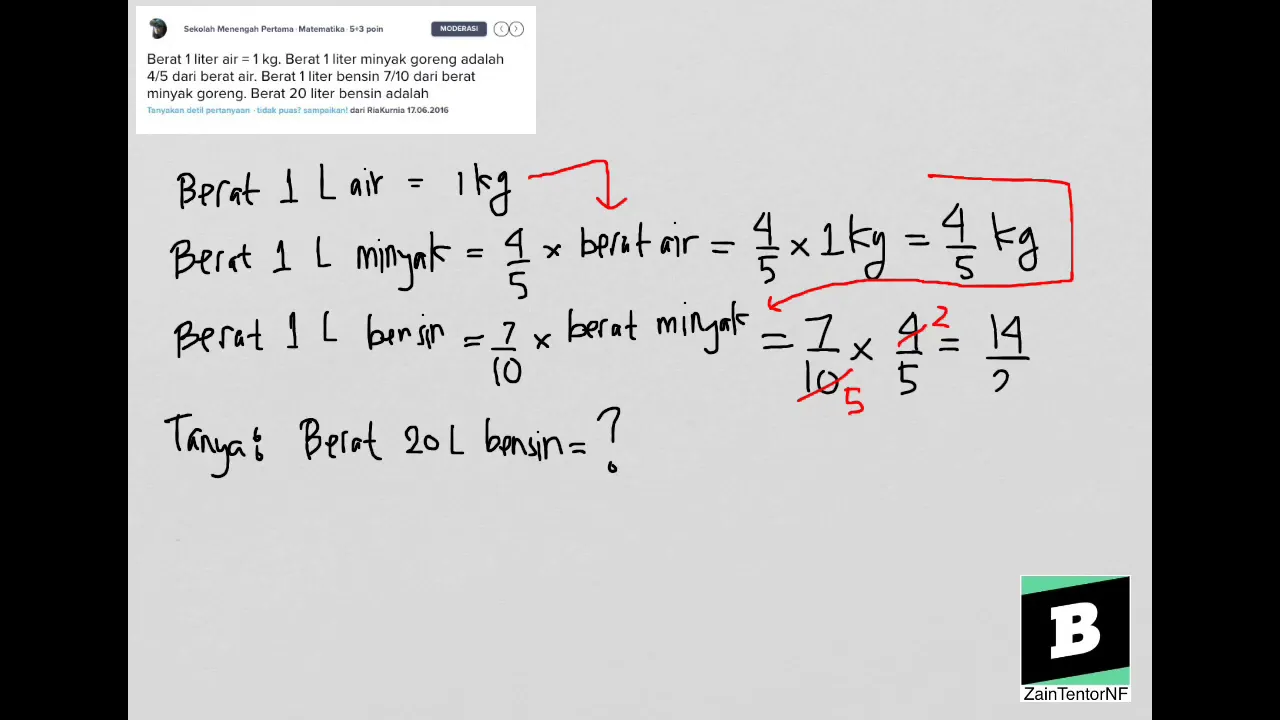 Sekolah Menengah Pertama · Matematika · 5+3 poin
MODERASI
Berat 1 liter air = 1 kg. Berat 1 liter minyak goreng adalah
4/5 dari berat air. Berat 1 liter bensin 7/10 dari berat
minyak goreng. Berat 20 liter bensin adalah
Tanyakan detil pertanyaan · tidak puas? sampaikan! dari RiaKurnia 17.06.2016
Berat 1 L air = 1 kg
Berat 1 L minyak = 4/5 × berat air = 4/5 × 1 kg = 4/5 kg
Berat 1 L bensin = 7/10 × berat minyak = 7/10 × 4/5 = 14/2
2
5
Tanya: Berat 20 L bensin = ?
B
ZainTentorNF